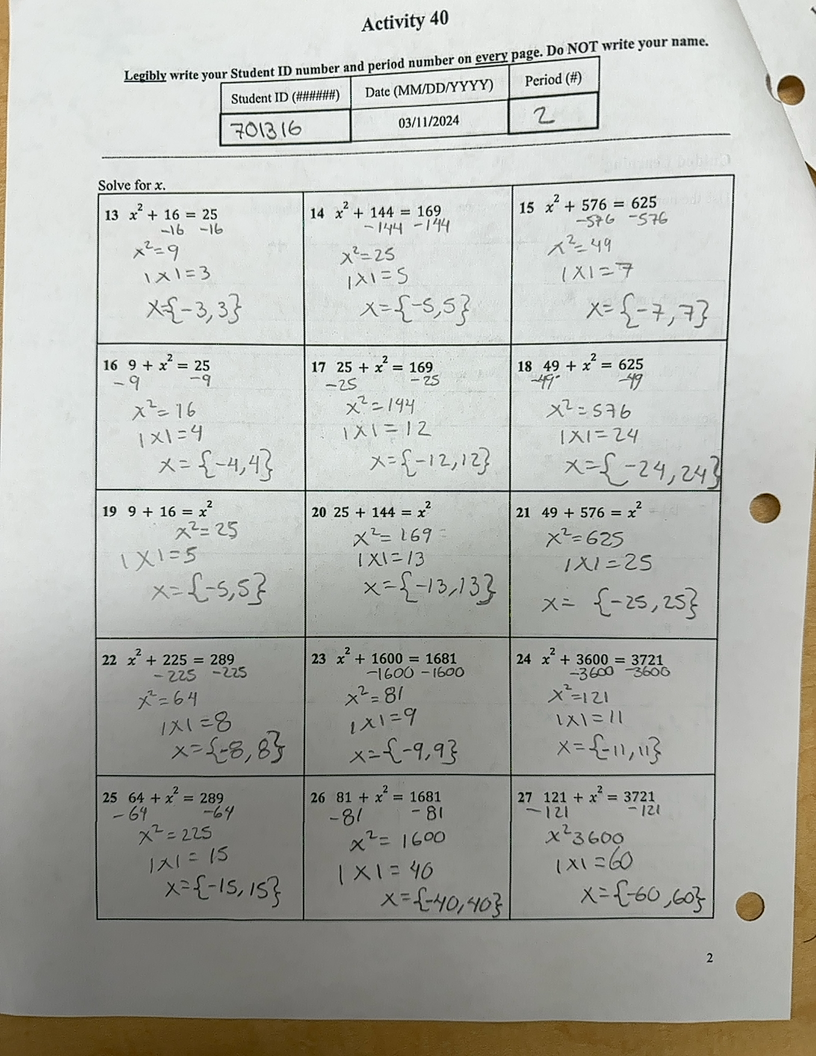 Activity 40
Legibly write your Student ID number and period number on every page. Do NOT write your name.
Student ID (######) Date (MM/DD/YYYY) Period (#)
701316 03/11/2024 2
Solve for x.
13 x² + 16 = 25
-16 -16
x²=9
|x|=3
x{-3,3}
14 x² + 144 = 169
-144 -144
x²=25
|x|=5
x={-5,5}
15 x² + 576 = 625
-576 -576
x²=49
|x|=7
x={-7,7}
16 9 + x² = 25
-9 -9
x²=16
|x|=4
x={-4,4}
17 25 + x² = 169
-25 -25
x²=144
|x|=12
x={-12,12}
18 49 + x² = 625
-49 -49
x²=576
|x|=24
x={-24,24}
19 9 + 16 = x²
x²=25
|x|=5
x={-5,5}
20 25 + 144 = x²
x²=169
|x|=13
x={-13,13}
21 49 + 576 = x²
x²=625
|x|=25
x= {-25,25}
22 x² + 225 = 289
-225 -225
x²=64
|x|=8
x={-8,8}
23 x² + 1600 = 1681
-1600 -1600
x²=81
|x|=9
x={-9,9}
24 x² + 3600 = 3721
-3600 -3600
x²=121
|x|=11
x={-11,11}
25 64 + x² = 289
-64 -64
x²=225
|x|=15
x={-15,15}
26 81 + x² = 1681
-81 -81
x²=1600
|x|=40
x={-40,40}
27 121 + x² = 3721
-121 -121
x²3600
|x|=60
x={-60,60}
2